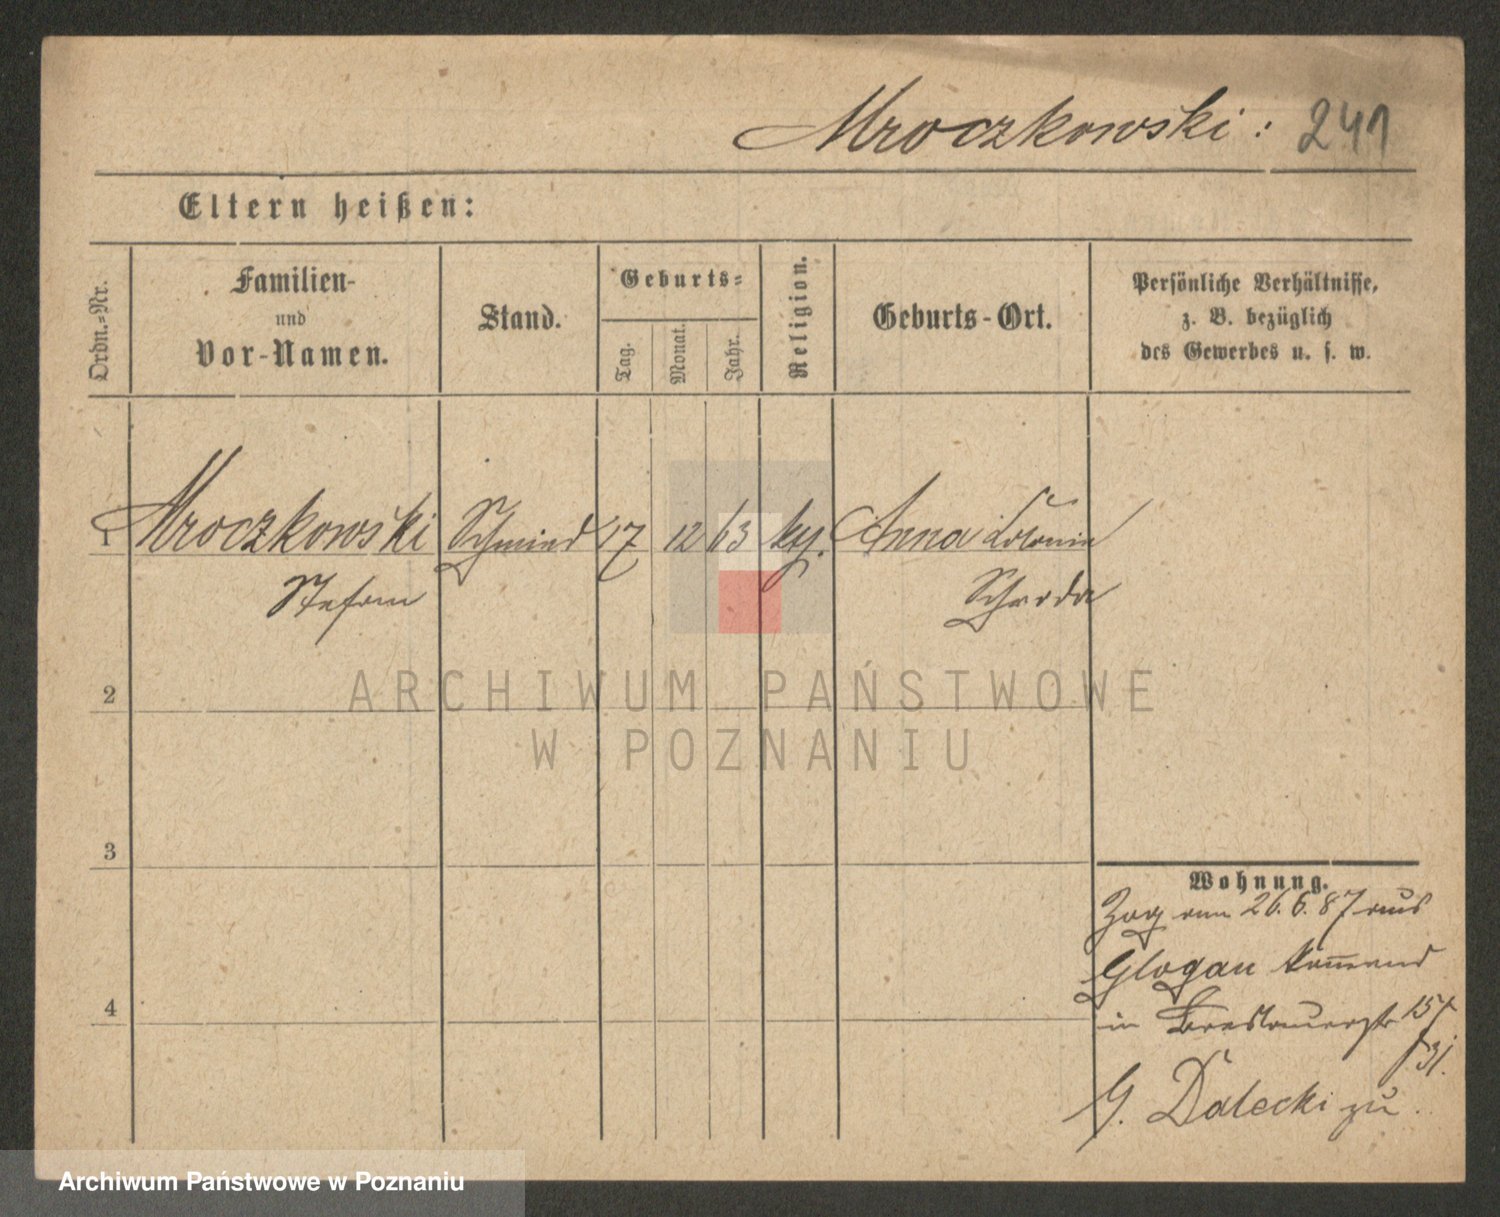 Mroczkowski : 241
Eltern heißen:
Ordn.-Nr.
Familien-
und
Vor-Namen.
Stand.
Geburts-
Tag.
Monat.
Jahr.
Religion.
Geburts-Ort.
Persönliche Verhältnisse,
z. B. bezüglich
des Gewerbes u. s. w.
1 Mroczkowski Schmied 17 12 63 Anna Colonie
Stefan Schroda
2
ARCHIWUM PAŃSTWOWE
W POZNANIU
3
4
Wohnung.
Zog am 26.6.87 aus
Glogau kommend
in Breslauerstr 15
31.
G. Dalecki zu
Archiwum Państwowe w Poznaniu